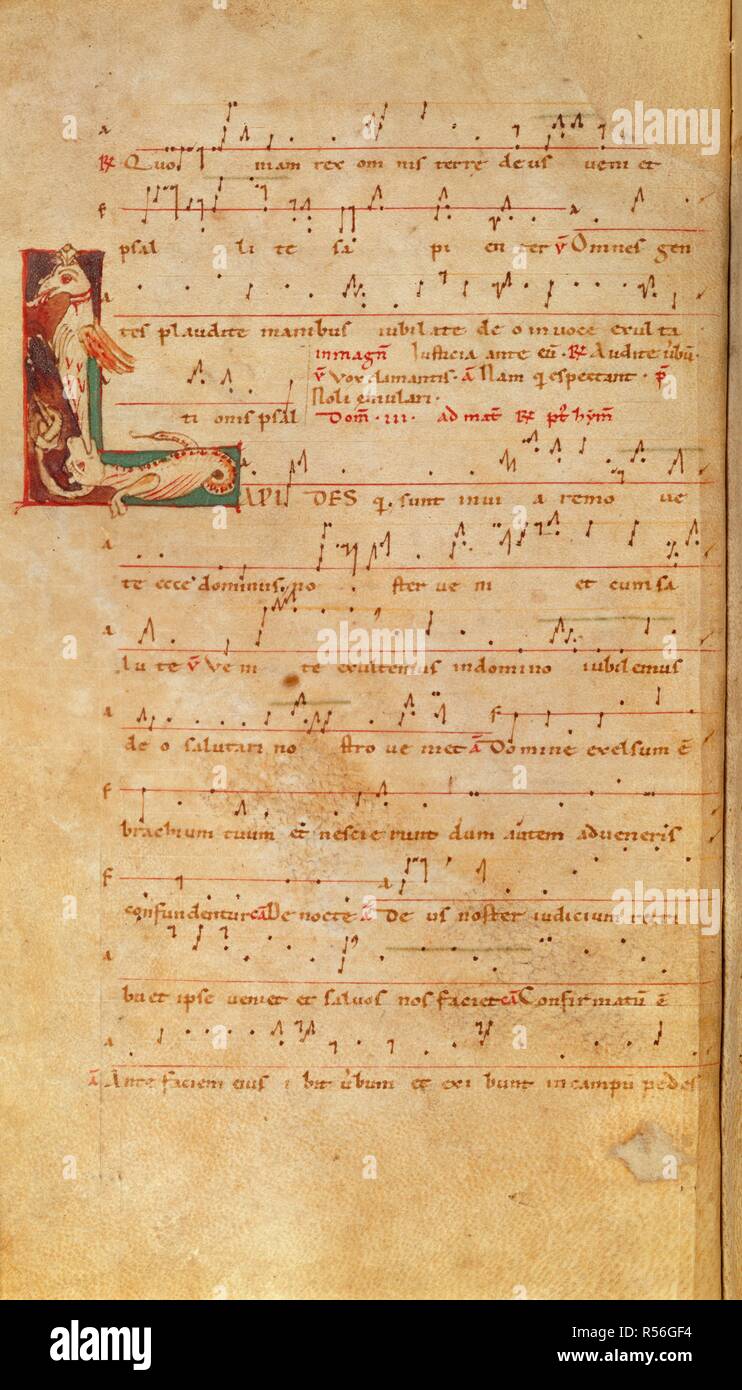 ℟ Quo niam rex om nis terre deus veni et
psal li te sa pi en ter v̄ Omnes gen
tes plaudite manibus iubilate de o in voce exulta
in magn̄ Iusticia ante eū · ℟ Audite ūbū ·
v̄ Vox clamantis · ā Nam q espectant · p̄
Noli emulari ·
ti onis psal Dom̄ · iii · ad mat̄
LAPI DES q sunt in ui a remo ve
te ecce dominus no ster ve ni et cum sa
lu te v̄ Ve ni te exultemus in domino iubilemus
de o salutari no stro ve niet ā Domine exelsum ē
brachium tuum et nescie runt dum autem adveneris
confundentur De nocte ā De us noster iudicium retri
buet ipse veniet et salvos nos faciet Confirmatū ē
ā Ante faciem eius i bit v̄bum et exi bunt in campū pedes
alamy
alamy stock photo
R56GF4
www.alamy.com